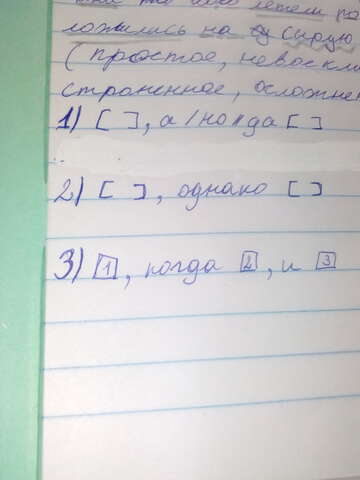 летели
ложились на сырую
(простое, невоскли
страненное, осложнен
1) [ ], а/когда [ ]
2) [ ], однако [ ]
3) [1], когда [2], и [3]